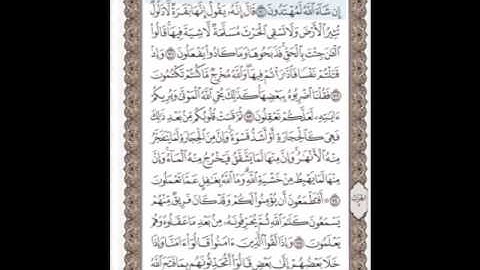 إِن شَاءَ ٱللَّهُ لَمُهْتَدُونَ ۝ قَالَ إِنَّهُۥ يَقُولُ إِنَّهَا بَقَرَةٌ لَّا ذَلُولٌ
تُثِيرُ ٱلْأَرْضَ وَلَا تَسْقِى ٱلْحَرْثَ مُسَلَّمَةٌ لَّا شِيَةَ فِيهَا قَالُوا۟
ٱلْـَٰٔنَ جِئْتَ بِٱلْحَقِّ فَذَبَحُوهَا وَمَا كَادُوا۟ يَفْعَلُونَ ۝ وَإِذْ
قَتَلْتُمْ نَفْسًا فَٱدَّٰرَْٰٔتُمْ فِيهَا وَٱللَّهُ مُخْرِجٌ مَّا كُنتُمْ تَكْتُمُونَ
۝ فَقُلْنَا ٱضْرِبُوهُ بِبَعْضِهَا كَذَٰلِكَ يُحْىِ ٱللَّهُ ٱلْمَوْتَىٰ وَيُرِيكُمْ
ءَايَٰتِهِۦ لَعَلَّكُمْ تَعْقِلُونَ ۝ ثُمَّ قَسَتْ قُلُوبُكُم مِّنۢ بَعْدِ ذَٰلِكَ
فَهِىَ كَٱلْحِجَارَةِ أَوْ أَشَدُّ قَسْوَةً وَإِنَّ مِنَ ٱلْحِجَارَةِ لَمَا يَتَفَجَّرُ
مِنْهُ ٱلْأَنْهَٰرُ وَإِنَّ مِنْهَا لَمَا يَشَّقَّقُ فَيَخْرُجُ مِنْهُ ٱلْمَاءُ وَإِنَّ
مِنْهَا لَمَا يَهْبِطُ مِنْ خَشْيَةِ ٱللَّهِ وَمَا ٱللَّهُ بِغَٰفِلٍ عَمَّا تَعْمَلُونَ
۝ أَفَتَطْمَعُونَ أَن يُؤْمِنُوا۟ لَكُمْ وَقَدْ كَانَ فَرِيقٌ مِّنْهُمْ
يَسْمَعُونَ كَلَٰمَ ٱللَّهِ ثُمَّ يُحَرِّفُونَهُۥ مِنۢ بَعْدِ مَا عَقَلُوهُ وَهُمْ
يَعْلَمُونَ ۝ وَإِذَا لَقُوا۟ ٱلَّذِينَ ءَامَنُوا۟ قَالُوا۟ ءَامَنَّا وَإِذَا
خَلَا بَعْضُهُمْ إِلَىٰ بَعْضٍ قَالُوا۟ أَتُحَدِّثُونَهُم بِمَا فَتَحَ ٱللَّهُ